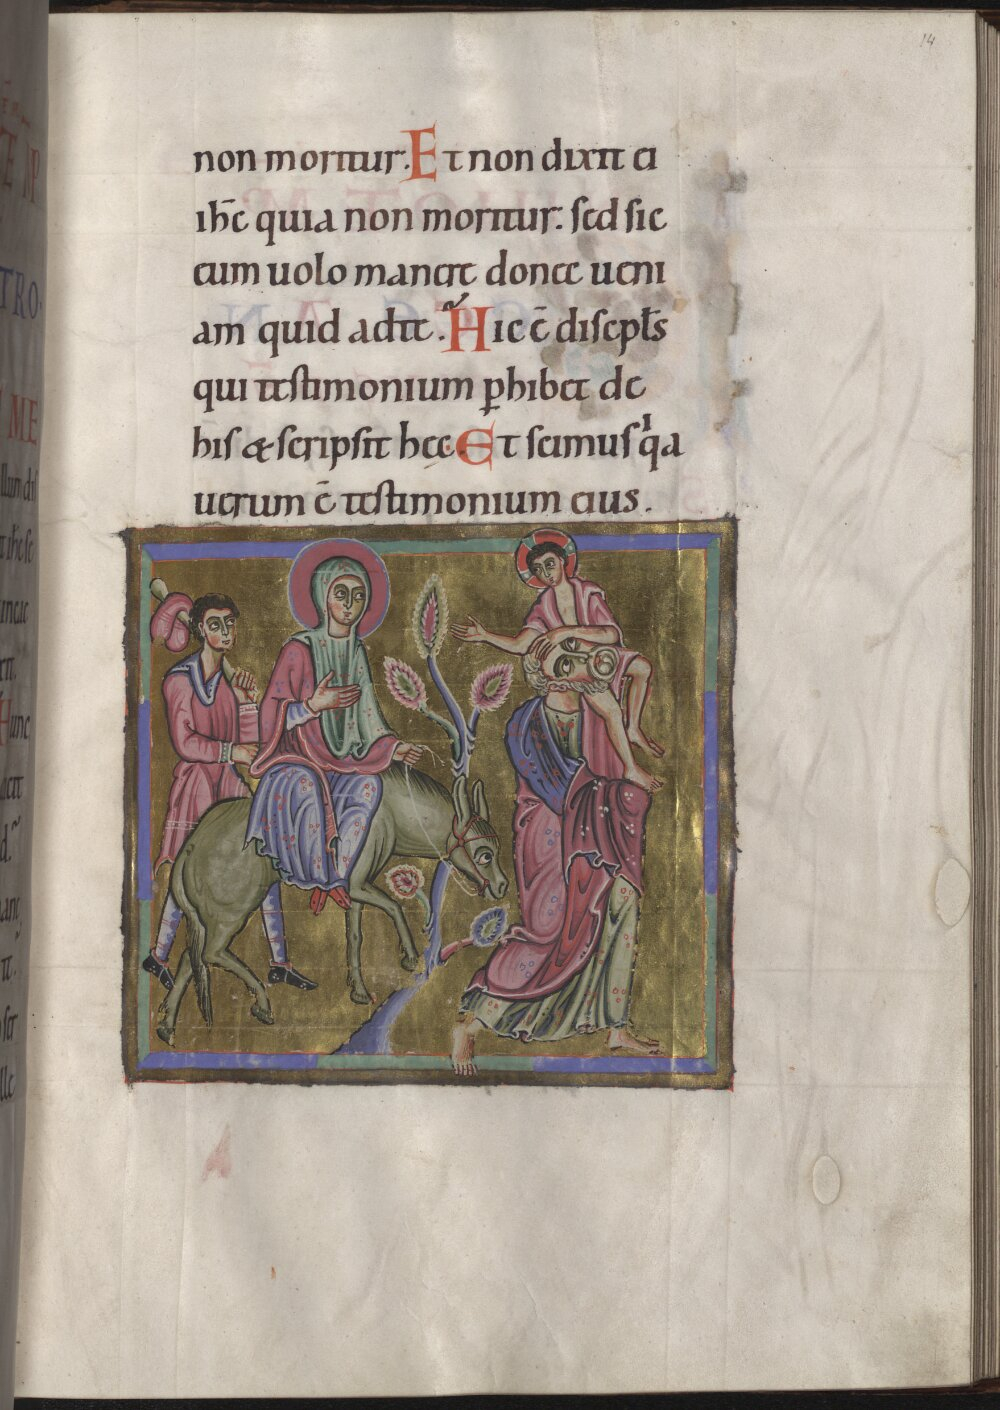 14
non moritur. Et non dixit ei
ih̅c quia non moritur: sed sic
eum uolo manere donec ueni
am quid ad te. Hic e̅ discipl̅s
qui testimonium p̱hibet de
his & scripsit hec. Et scimus qͥa
uerum e̅ testimonium eius.